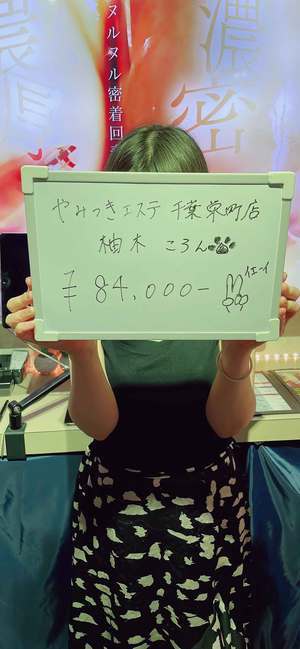 濃密
ヌルヌル密着回
やみつきエステ 千葉栄町店
柚木 ころん
¥84,000-
イエーイ